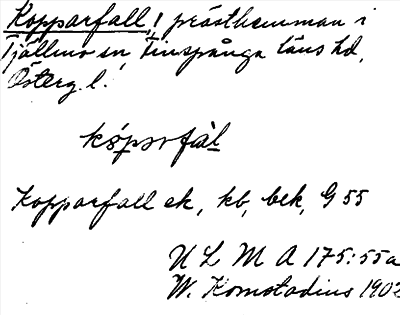 Kopparfall, 1 prästhemman i
Tjällmo sn, Finspånga läns hd,
Österg. l.
kópɔrfàl
Kopparfall ek, kb, bek, G 55
U L M A 175:55a
W. Komstadius 1902